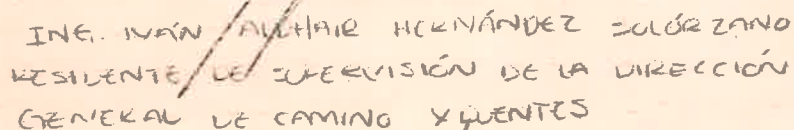 ING. IVÁN ALTHAIR HERNÁNDEZ SOLÓRZANO
RESIDENTE DE SUPERVISIÓN DE LA DIRECCIÓN
GENERAL DE CAMINO Y PUENTES